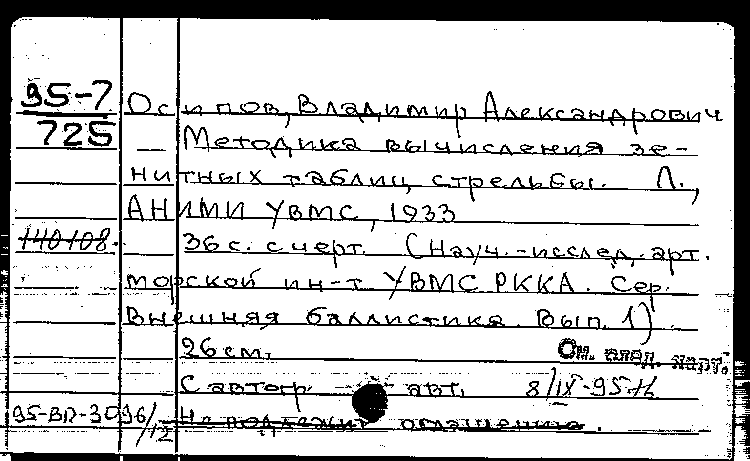 95-7 Осипов, Владимир Александрович
725 — Методика вычисления зе-
нитных таблиц стрельбы. Л.,
АНИМИ УВМС, 1933
140108. 36 с. с черт. (Науч.-исслед. арт.
морской ин-т УВМС РККА. Сер.
Внешняя баллистика. Вып. 1)
26 см. См. алф. карт.
С автогр. авт. 8/IX-95
95-ВП-3096/12 Не подлежит оглашению.